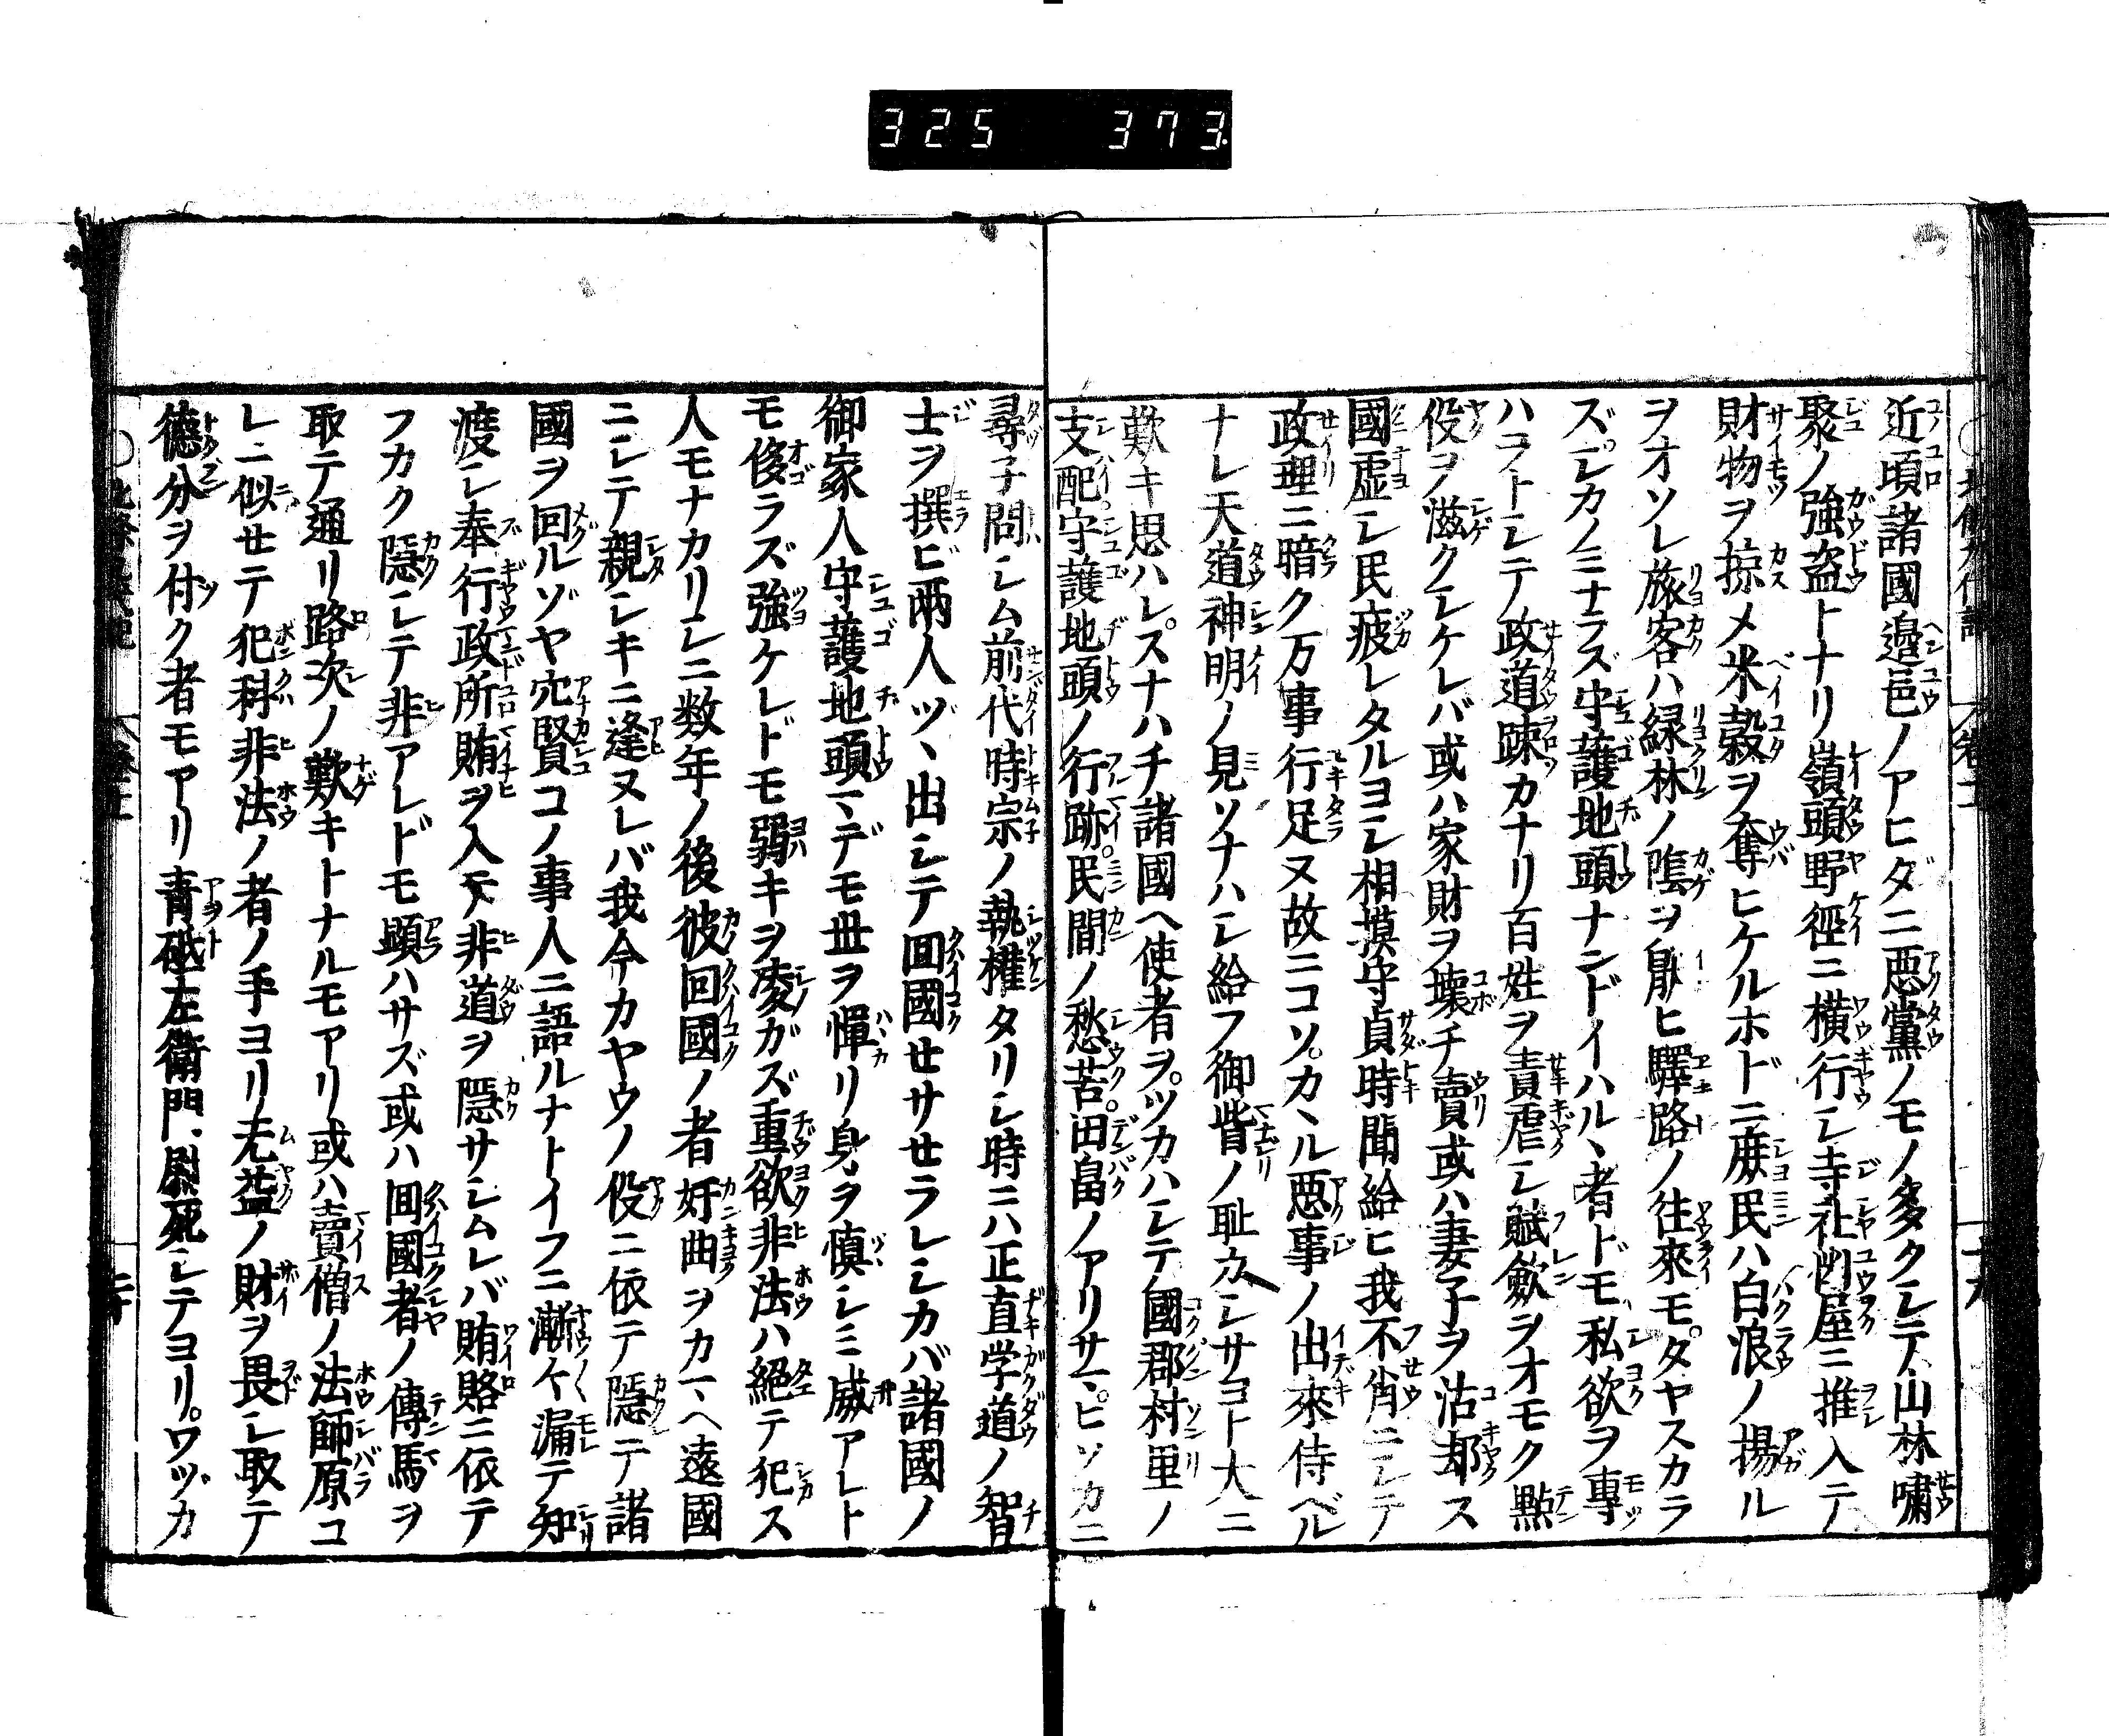 325 373
近頃諸國邉邑ノアヒダニ惡黨ノモノ多クシテ山林嘯
聚ノ強盗トナリ嶺頭野徑ニ横行シ寺社幽屋ニ推入テ
財物ヲ掠メ米穀ヲ奪ヒケルホドニ庶民ハ白浪ノ揚ル
ヲオソレ旅客ハ緑林ノ陰ヲ厭ヒ驛路ノ往來モタヤスカラ
ズシカノミナラズ守護地頭ナンドイハルヽ者ドモ私欲ヲ專
ハラトシテ政道踈カナリ百姓ヲ責虐シ賦斂ヲオモク點
役ヲ滋クシケレバ或ハ家財ヲ壊チ賣或ハ妻子ヲ沽却ス
國虚シ民疲レタルヨシ相摸守貞時聞給ヒ我不肖ニシテ
政理ニ暗ク万事行足ヌ故ニコソカヽル惡事ノ出來侍ベル
ナレ天道神明ノ見ソナハシ給フ御眥ノ恥カシサヨト大ニ
歎キ思ハレスナハチ諸國ヘ使者ヲツカハシテ國郡村里ノ
支配守護地頭ノ行跡民間ノ愁苦田畠ノアリサマヒソカニ
尋子問シム前代時宗ノ執權タリシ時ニハ正直学道ノ智
士ヲ撰ビ兩人ヅヽ出シテ囬國せサせラレシカバ諸國ノ
御家人守護地頭マデモ丗ヲ憚リ身ヲ慎シミ威アレト
モ侈ラズ強ケレドモ弱キヲ凌ガズ重欲非法ハ絕テ犯ス
人モナカリシニ数年ノ後彼回國ノ者奸曲ヲカマヘ遠國
ニシテ親シキニ逢ヌレバ我今カヤウノ役ニ依テ隱テ諸
國ヲ回ルゾヤ穴賢コノ事人ニ語ルナトイフニ漸ケ漏テ知
渡シ奉行政所賄ヲ入テ非道ヲ隱サシムレバ賄賂ニ依テ
フカク隱シテ非アレドモ顕ハサズ或ハ囬國者ノ傳馬ヲ
取テ通リ路次ノ歎キトナルモアリ或ハ賣僧ノ法師原コ
レニ似せテ犯科非法ノ者ノ手ヨリ无益ノ財ヲ畏シ取テ
德分ヲ付ク者モアリ青砥左衛門尉死シテヨリワヅカ